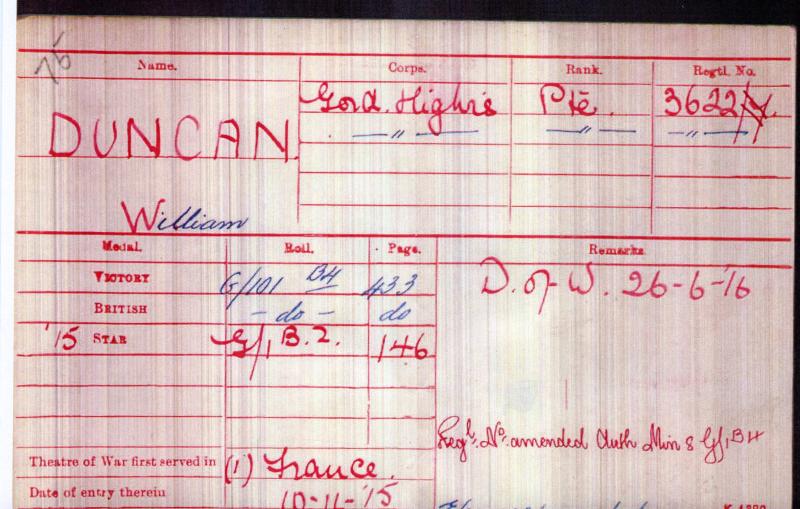 Name. Corps. Rank. Regtl. No.
DUNCAN. Gord. Highrs Pte. 3622
— " — — " — — " —
William
Medal. Roll. Page. Remarks
VICTORY G/101 B4 433 D. of W. 26-6-16
BRITISH - do - do
'15 STAR G/1 B.2. 146
Regl. No. amended Auth Min 8 G/1 B4
Theatre of War first served in (1) France.
Date of entry therein 10-11-15